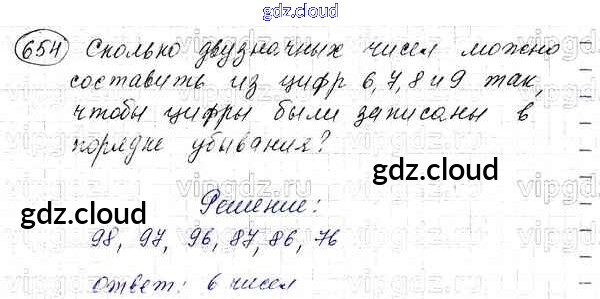 gdz.cloud
654 Сколько двузначных чисел можно
составить из цифр 6, 7, 8 и 9 так,
чтобы цифры были записаны в
порядке убывания?
gdz.cloud
gdz.cloud
Решение:
98, 97, 96, 87, 86, 76
ответ: 6 чисел